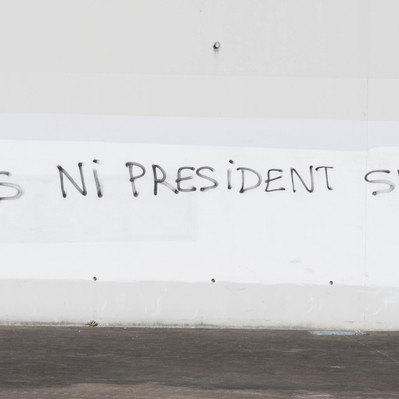 S Ni PRESiDENT S